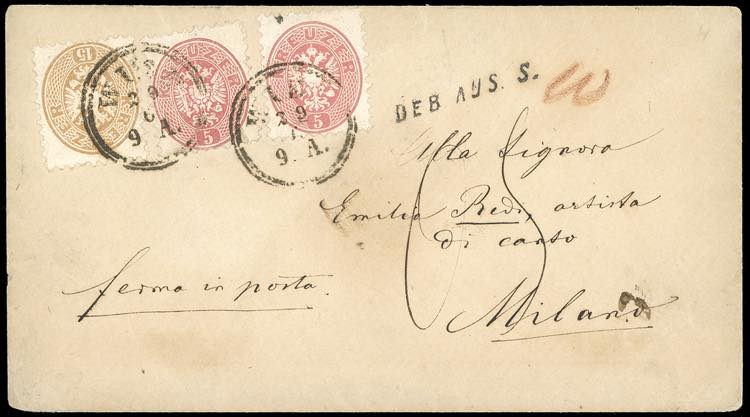 15 KREUZER
KREUZER 5
KREUZER 5
WIEN
9. A.
WIEN
9. A.
DEB AUS. S.
Alla Signora
Emilia Redi, artista
di canto
ferma in posta
Milano